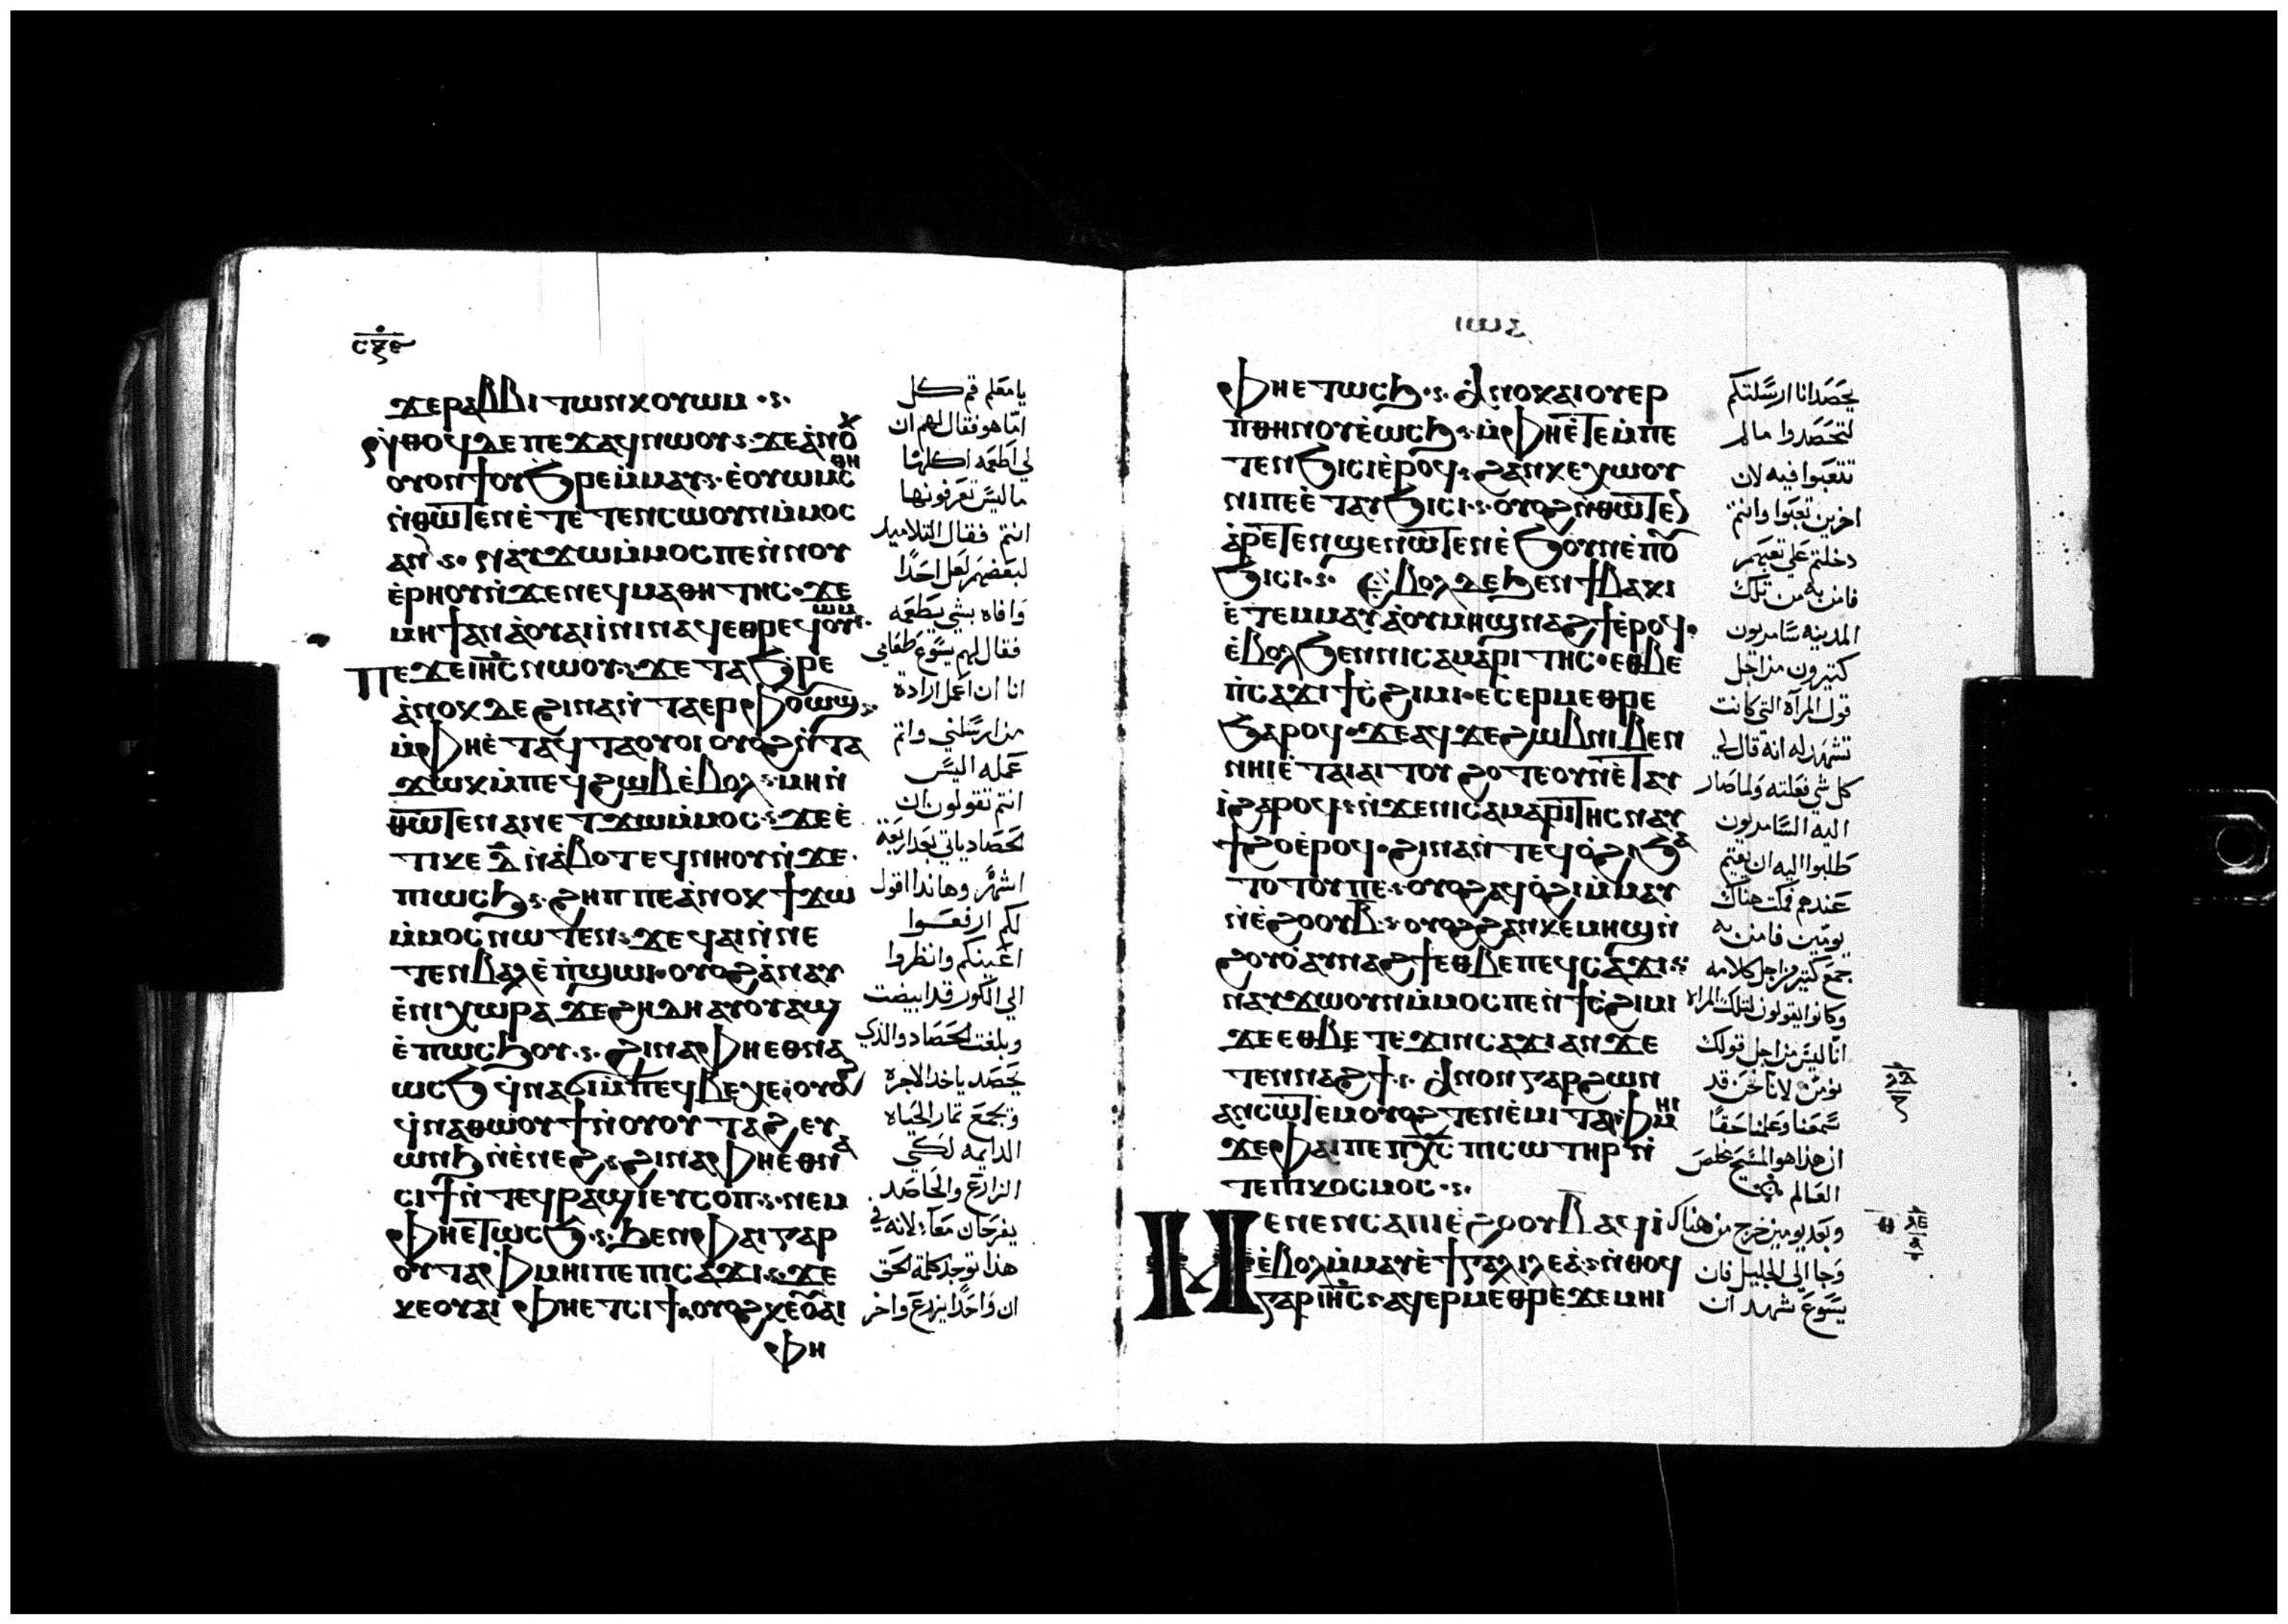 ϫⲉⲣⲁⲃⲃⲓ ⲧⲱⲛⲕ ⲟⲩⲱⲙ
ⲛ̀ⲑⲟϥ ⲇⲉ ⲡⲉϫⲁϥ ⲛⲱⲟⲩ ϫⲉ ⲁ̀ⲛⲟⲕ
ⲟⲩⲟⲛϯ ⲟⲩϧⲣⲉ ⲙ̀ⲙⲁⲩ ⲉ̀ⲟⲩⲟⲙⲥ ⲑⲏ
ⲛ̀ⲑⲱⲧⲉⲛ ⲉ̀ⲧⲉ ⲧⲉⲛⲥⲱⲟⲩⲛ ⲙ̀ⲙⲟⲥ
ⲁⲛ ⲛⲁⲩϫⲱ ⲙ̀ⲙⲟⲥ ⲡⲉ ⲛ̀ⲛⲟⲩ
ⲉ̀ⲣⲏⲟⲩ ⲛ̀ϫⲉ ⲛⲉϥⲙⲁⲑⲏⲧⲏⲥ ϫⲉ
ⲙⲏϯ ⲁⲛ ⲁ̀ⲟⲩⲁⲓ ⲓ̀ⲛⲓ ⲛⲁϥ ⲉⲑⲣⲉϥⲟⲩⲱⲙ
ⲡⲉϫⲉ ⲓⲏⲥ ⲛⲱⲟⲩ ϫⲉ ⲧⲁϧⲣⲉ
ⲁ̀ⲛⲟⲕ ⲇⲉ ϩⲓⲛⲁ ⲛ̀ⲧⲁⲉⲣ ⲫⲟⲩⲱϣ
ⲙ̀ⲫⲏⲉ̀ⲧⲁϥⲧⲁⲟⲩⲟⲓ ⲟⲩⲟϩ ⲛ̀ⲧⲁ
ϫⲱⲕ ⲙ̀ⲡⲉϥϩⲱⲃ ⲉ̀ⲃⲟⲗ ⲙⲏ ⲛ̀
ⲑⲱⲧⲉⲛ ⲁⲛ ⲉⲧϫⲱ ⲙ̀ⲙⲟⲥ ϫⲉ ⲉ̀
ⲧⲓⲕⲉ ⲇ̅ ⲛ̀ⲁ̀ⲃⲟⲧ ⲉϥⲛⲏⲟⲩ ⲛ̀ϫⲉ
ⲡⲓⲱⲥϧ ϩⲏⲡⲡⲉ ⲁ̀ⲛⲟⲕ ϯϫⲱ
ⲙ̀ⲙⲟⲥ ⲛⲱⲧⲉⲛ ϫⲉ ϥⲁⲓ ⲛ̀ⲛⲉ
ⲧⲉⲛⲃⲁⲗ ⲉ̀ⲡ̀ϣⲱⲓ ⲟⲩⲟϩ ⲁ̀ⲛⲁⲩ
ⲉ̀ⲛⲓⲭⲱⲣⲁ ϫⲉ ϩⲏⲇⲏ ⲁⲩⲟⲩⲁϣ
ⲉ̀ⲡⲱⲥϧⲟⲩ ϩⲓⲛⲁ ⲫⲏⲉⲑⲛⲁ
ⲱⲥϧ ϥⲛⲁϭⲓ ⲙ̀ⲡⲉϥⲃⲉⲭⲉ ⲟⲩⲟϩ
ϥⲛⲁⲑⲱⲟⲩϯ ⲛ̀ⲟⲩⲟⲩⲧⲁϩ ⲉⲩ
ⲱⲛϧ ⲛ̀ⲉ̀ⲛⲉϩ ϩⲓⲛⲁ ⲫⲏⲉⲑⲛⲁ
ⲥⲓϯ ⲛ̀ⲧⲉϥⲣⲁϣⲓ ⲉⲩⲥⲟⲡ ⲛⲉⲙ
ⲫⲏⲉⲧⲱⲥϧ ϧⲉⲛ ⲫⲁⲓ ⲅⲁⲣ
ⲟⲩⲧⲁⲫⲙⲏⲓ ⲡⲉ ⲡⲓⲥⲁϫⲓ ϫⲉ
ⲕⲉⲟⲩⲁⲓ ⲫⲏⲉⲧⲥⲓϯ ⲟⲩⲟϩ ⲕⲉⲟⲩⲁⲓ
ⲫⲏ
يا معلم قم كل
امّا هو فقال لهم ان
لي اطعمه اكلها
ما ليس تعرفونها
انتم فقال التلاميد
لبعضهم لعل احدًا
وافاه بشي يطعمه
فقال لهم يسوع طعامي
انا ان اعمل ارادة
من ارسلني واتم
عمله اليس
انتم تقولون ان
الحصاد ياتي بعد اربعة
اشهر وهاندا اقول
لكم ارفعوا
اعينكم وانظروا
الي الكور قد ابيضت
وبلغت الحصاد والذي
يحصد ياخد الاجره
ويجمع تمار الحياه
الدايمه لكي
الزارع والحاصد
يفرحان معًا لانه في
هذا توجد كلمة الحق
ان واحدًا يزرع واخر
ⲫⲏⲉⲧⲱⲥϧ ⲁⲛⲟⲕ ⲁⲓⲟⲩⲉⲣ
ⲡⲑⲏⲛⲟⲩ ⲉ̀ⲱⲥϧ ⲙ̀ⲫⲏⲉ̀ⲧⲉ ⲙⲡⲉ
ⲧⲉⲛϧⲓⲥⲓ ⲉ̀ⲣⲟϥ ϩⲁⲛⲕⲉⲭⲱⲟⲩ
ⲛⲓ ⲡⲉ ⲉ̀ⲧⲁⲩϧⲓⲥⲓ ⲟⲩⲟϩ ⲛ̀ⲑⲱⲧⲉⲛ
ⲁ̀ⲣⲉⲧⲉⲛϣⲉⲛⲱⲧⲉⲛ ⲉ̀ϧⲟⲩⲛ ⲉ̀ⲡⲟⲩ
ϧⲓⲥⲓ ⲉⲃⲟⲗ ⲇⲉ ϧⲉⲛ ϯⲃⲁⲕⲓ
ⲉ̀ⲧⲉⲙⲙⲁⲩ ⲁ̀ⲟⲩⲙⲏϣ ⲛⲁϩϯ ⲉ̀ⲣⲟϥ
ⲉ̀ⲃⲟⲗϧⲉⲛ ⲛⲓⲥⲁⲙⲁⲣⲓⲧⲏⲥ ⲉⲑⲃⲉ
ⲡ̀ⲥⲁϫⲓ ϯⲥ̀ϩⲓⲙⲓ ⲉⲥⲉⲣⲙⲉⲑⲣⲉ
ϧⲁⲣⲟϥ ϫⲉ ⲁϥϫⲉ ϩⲱⲃ ⲛⲓⲃⲉⲛ
ⲛⲏⲓ ⲉ̀ⲧⲁⲓⲁⲓⲧⲟⲩ ϩⲟⲧⲉ ⲟⲩⲛ ⲉ̀ⲧⲁⲩ
ⲓ̀ ϩⲁⲣⲟϥ ⲛ̀ϫⲉ ⲛⲓⲥⲁⲙⲁⲣⲓⲧⲏⲥ ⲛⲁⲩ
ϯϩⲟ ⲉ̀ⲣⲟϥ ϩⲓⲛⲁ ⲛ̀ⲧⲉϥⲟ̀ϩⲓ ϧⲁ
ⲧⲟⲧⲟⲩ ⲡⲉ ⲟⲩⲟϩ ⲁϥⲟ̀ϩⲓ ⲙ̀ⲙⲁⲩ
ⲛ̀ⲉ̀ϩⲟⲟⲩ ⲃ̅ ⲟⲩⲟϩ ϩⲁⲛⲕⲉⲙⲏϣ ⲛ̀
ϩⲟⲩⲟ̀ ⲁⲩⲛⲁϩϯ ⲉⲑⲃⲉ ⲡⲉϥⲥⲁϫⲓ
ⲛⲁⲩϫⲱⲟⲩⲛ ⲙ̀ⲙⲟⲥ ⲡⲉ ⲛ̀ϯⲥ̀ϩⲓⲙⲓ
ϫⲉ ⲉⲑⲃⲉ ⲧⲉ ϫⲓⲛⲥⲁϫⲓ ⲁⲛ ϫⲉ
ⲧⲉⲛⲛⲁϩϯ ⲁⲛⲟⲛ ⲅⲁⲣ ϩⲱⲛ
ⲁⲛⲥⲱⲧⲉⲙ ⲟⲩⲟϩ ⲧⲉⲛⲉ̀ⲙⲓ ⲧⲁⲫⲙⲏⲓ
ϫⲉ ⲫⲁⲓ ⲡⲉ ⲡⲭ̅ⲥ̅ ⲡⲓⲥⲱⲧⲏⲣ ⲛ̀
ⲧⲉ ⲡⲓⲕⲟⲥⲙⲟⲥ
ⲙⲉⲛⲉⲛⲥⲁ ⲡⲓⲉ̀ϩⲟⲟⲩ ⲃ̅ ⲁϥⲓ̀
ⲉ̀ⲃⲟⲗ ⲙ̀ⲙⲁⲩ ⲉ̀ϯⲅⲁⲗⲓⲗⲉⲁ̀ ⲛ̀ⲑⲟϥ
ⲅⲁⲣ ⲓⲏⲥ ⲁϥⲉⲣⲙⲉⲑⲣⲉ ϫⲉ ⲙⲏⲓ
يحصد انا ارسلتكم
لتحصدوا ما لم
تتعبوا فيه لان
اخرين تعبوا وانتم
دخلتم على تعبهم
فامن به من تلك
المدينه سامريون
كتيرون من اجل
قول المرآه التي كانت
تشهد له انه قال لي
كل شي فعلته ولما صار
اليه السامريون
طلبوا اليه ان يقيم
عندهم فمكت هناك
يومين فامن به
جمع كتير من اجل كلامه
وكانوا يقولون لتلك المراه
انا ليس من اجل قولك
نومن لانا نحن قد
سمعنا وعلمنا حقًا
ان هذا هو المسيح مخلص
العالم
وبعد يومين خرج من هناك
وجا الى الجليل فان
يسوع شهد ان